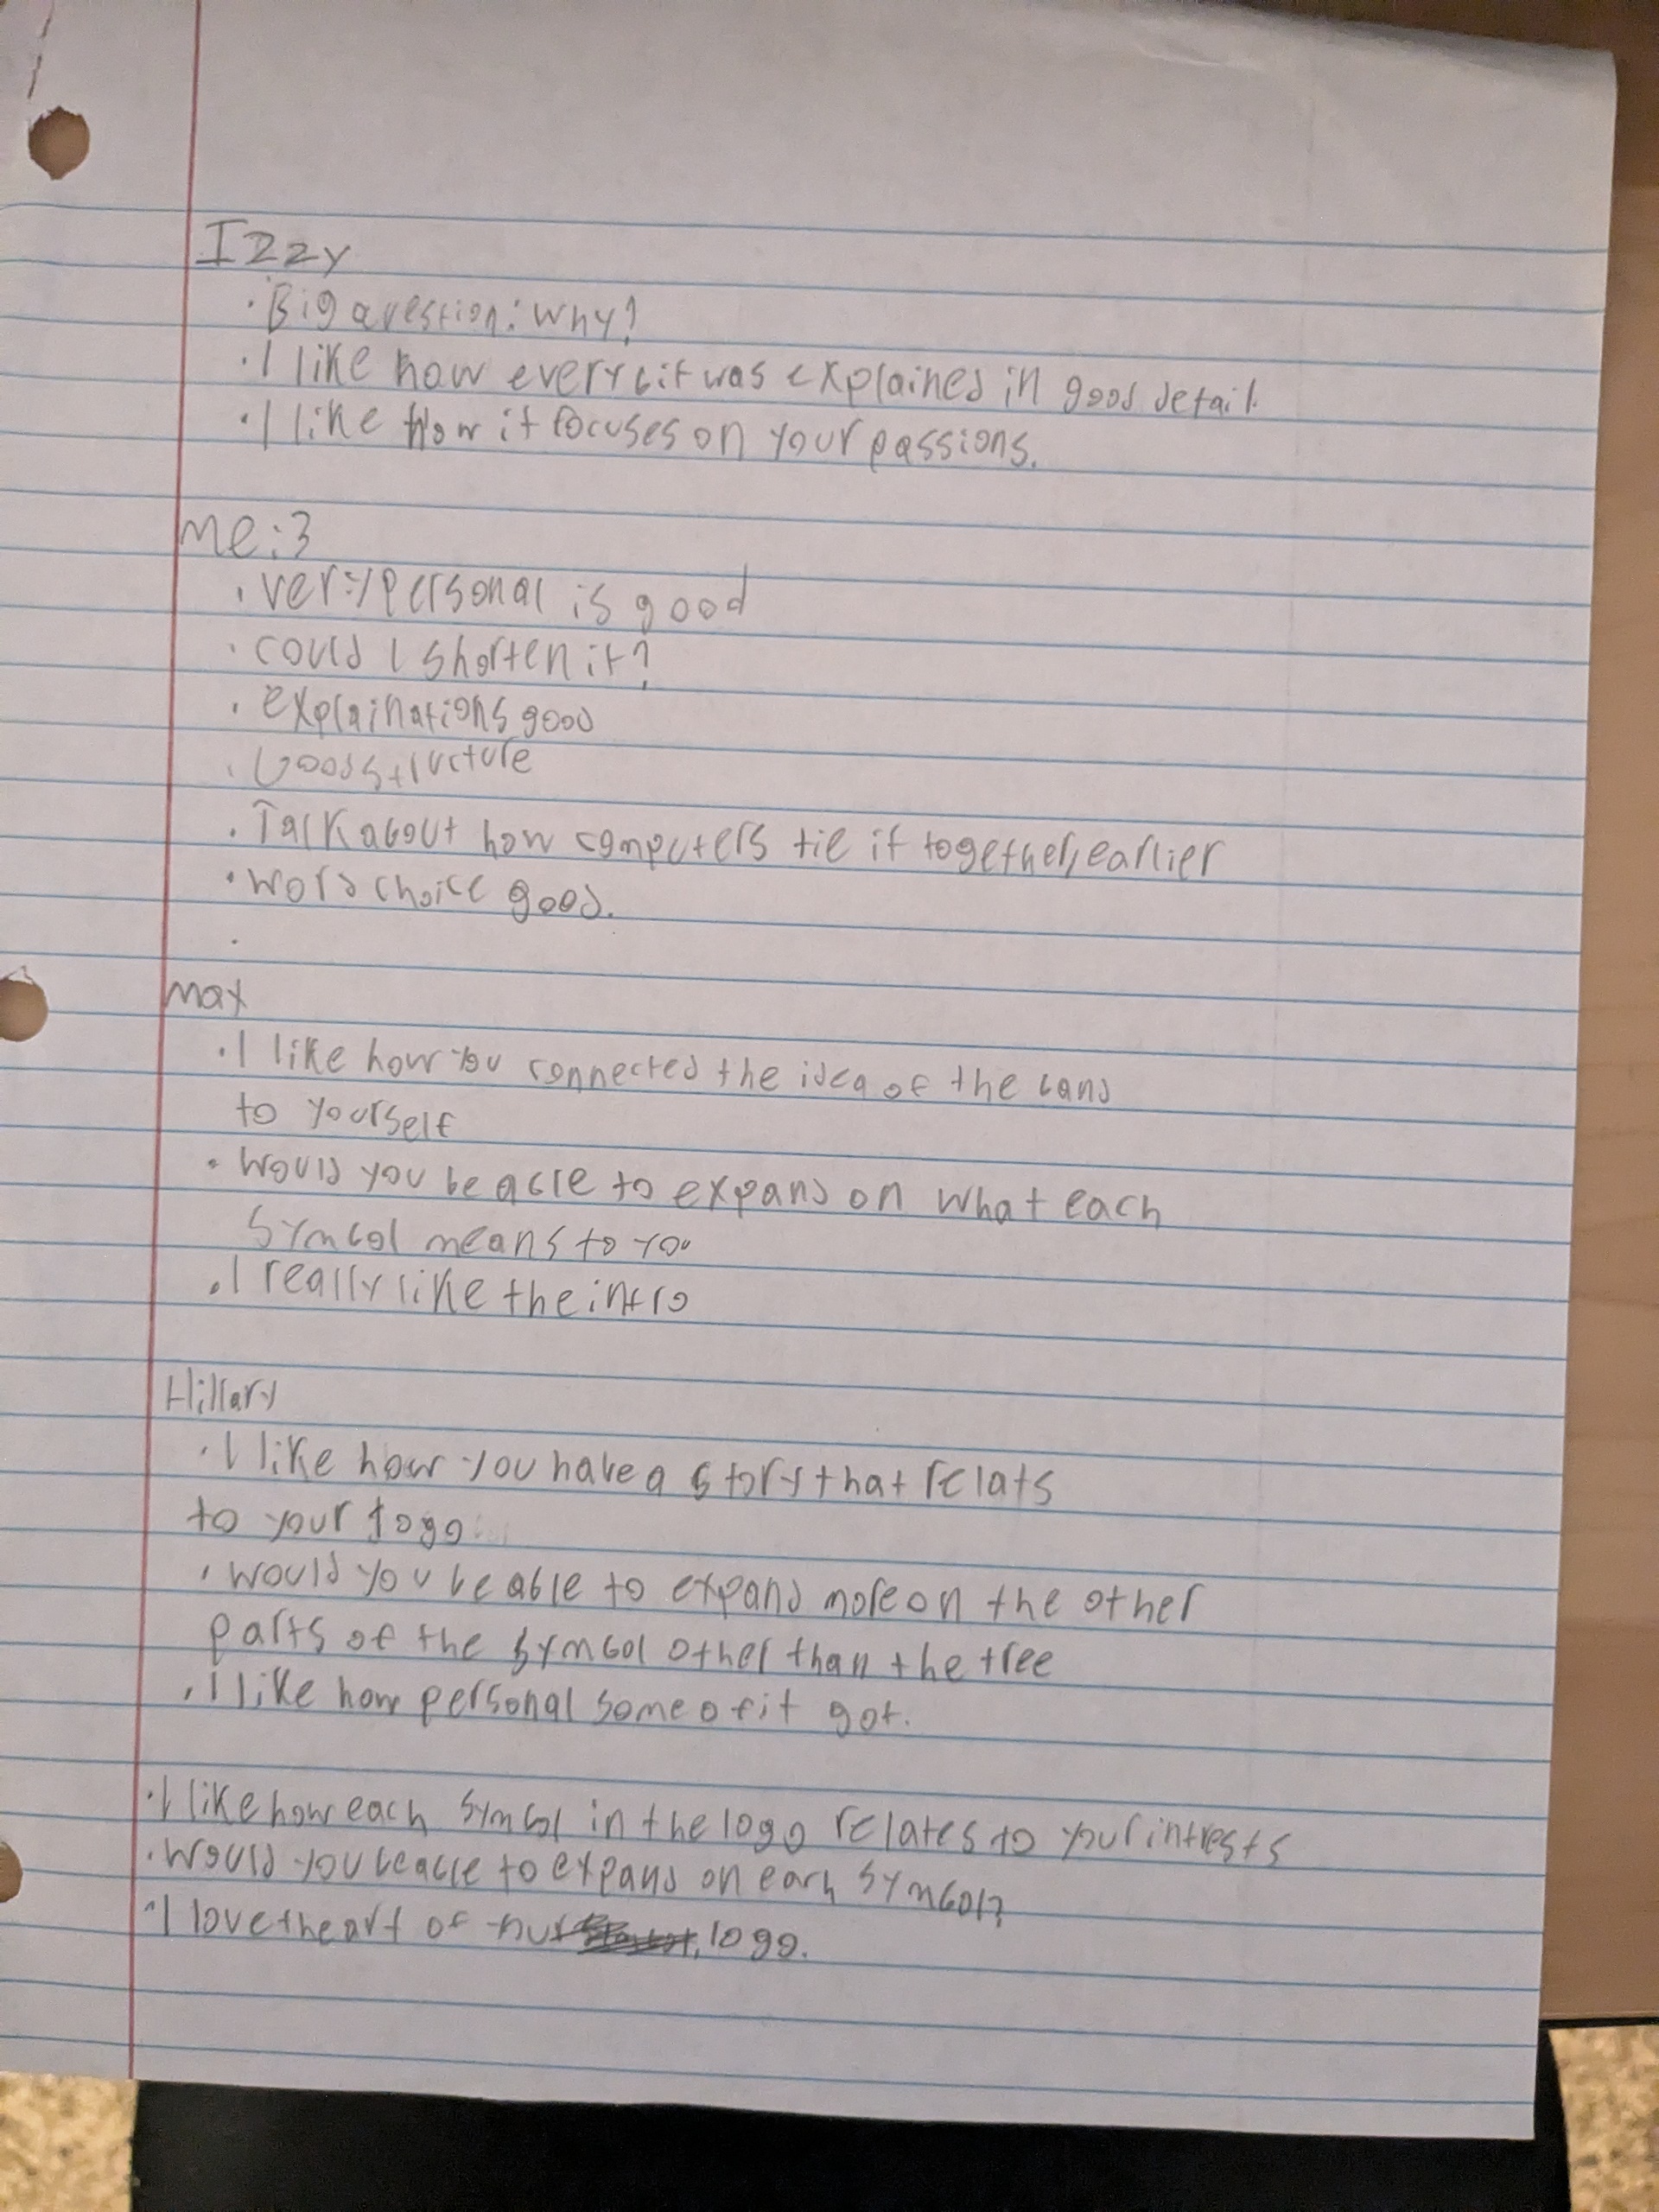 Izzy
· Big question: Why?
· I like how every bit was explained in good detail.
· I like how it focuses on your passions.
me:3
· very personal is good
· could I shorten it?
· explainations good
· Good structure
· Talk about how computers tie it together, earlier
· word choice good.
·
max
· I like how you connected the idea of the land
to yourself
· Would you be able to expand on what each
symbol means to you
· I really like the intro
Hillary
· I like how you have a story that relats
to your logo
· would you be able to expand more on the other
parts of the symbol other than the tree
· I like how personal some of it got.
· I like how each symbol in the logo relates to your intrests
· Would you be able to expand on each symbol?
· I love the art of logo.